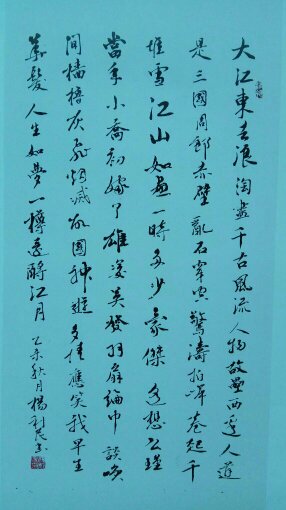 大江東去浪淘盡千古風流人物故壘西邊人道
是三國周郎赤壁亂石穿空驚濤拍岸卷起千
堆雪江山如畫一時多少豪傑遙想公瑾
當年小喬初嫁了雄姿英發羽扇綸巾談笑
間檣櫓灰飛烟滅故國神遊多情應笑我早生
華髮人生如夢一樽還酹江月 乙未秋月楊